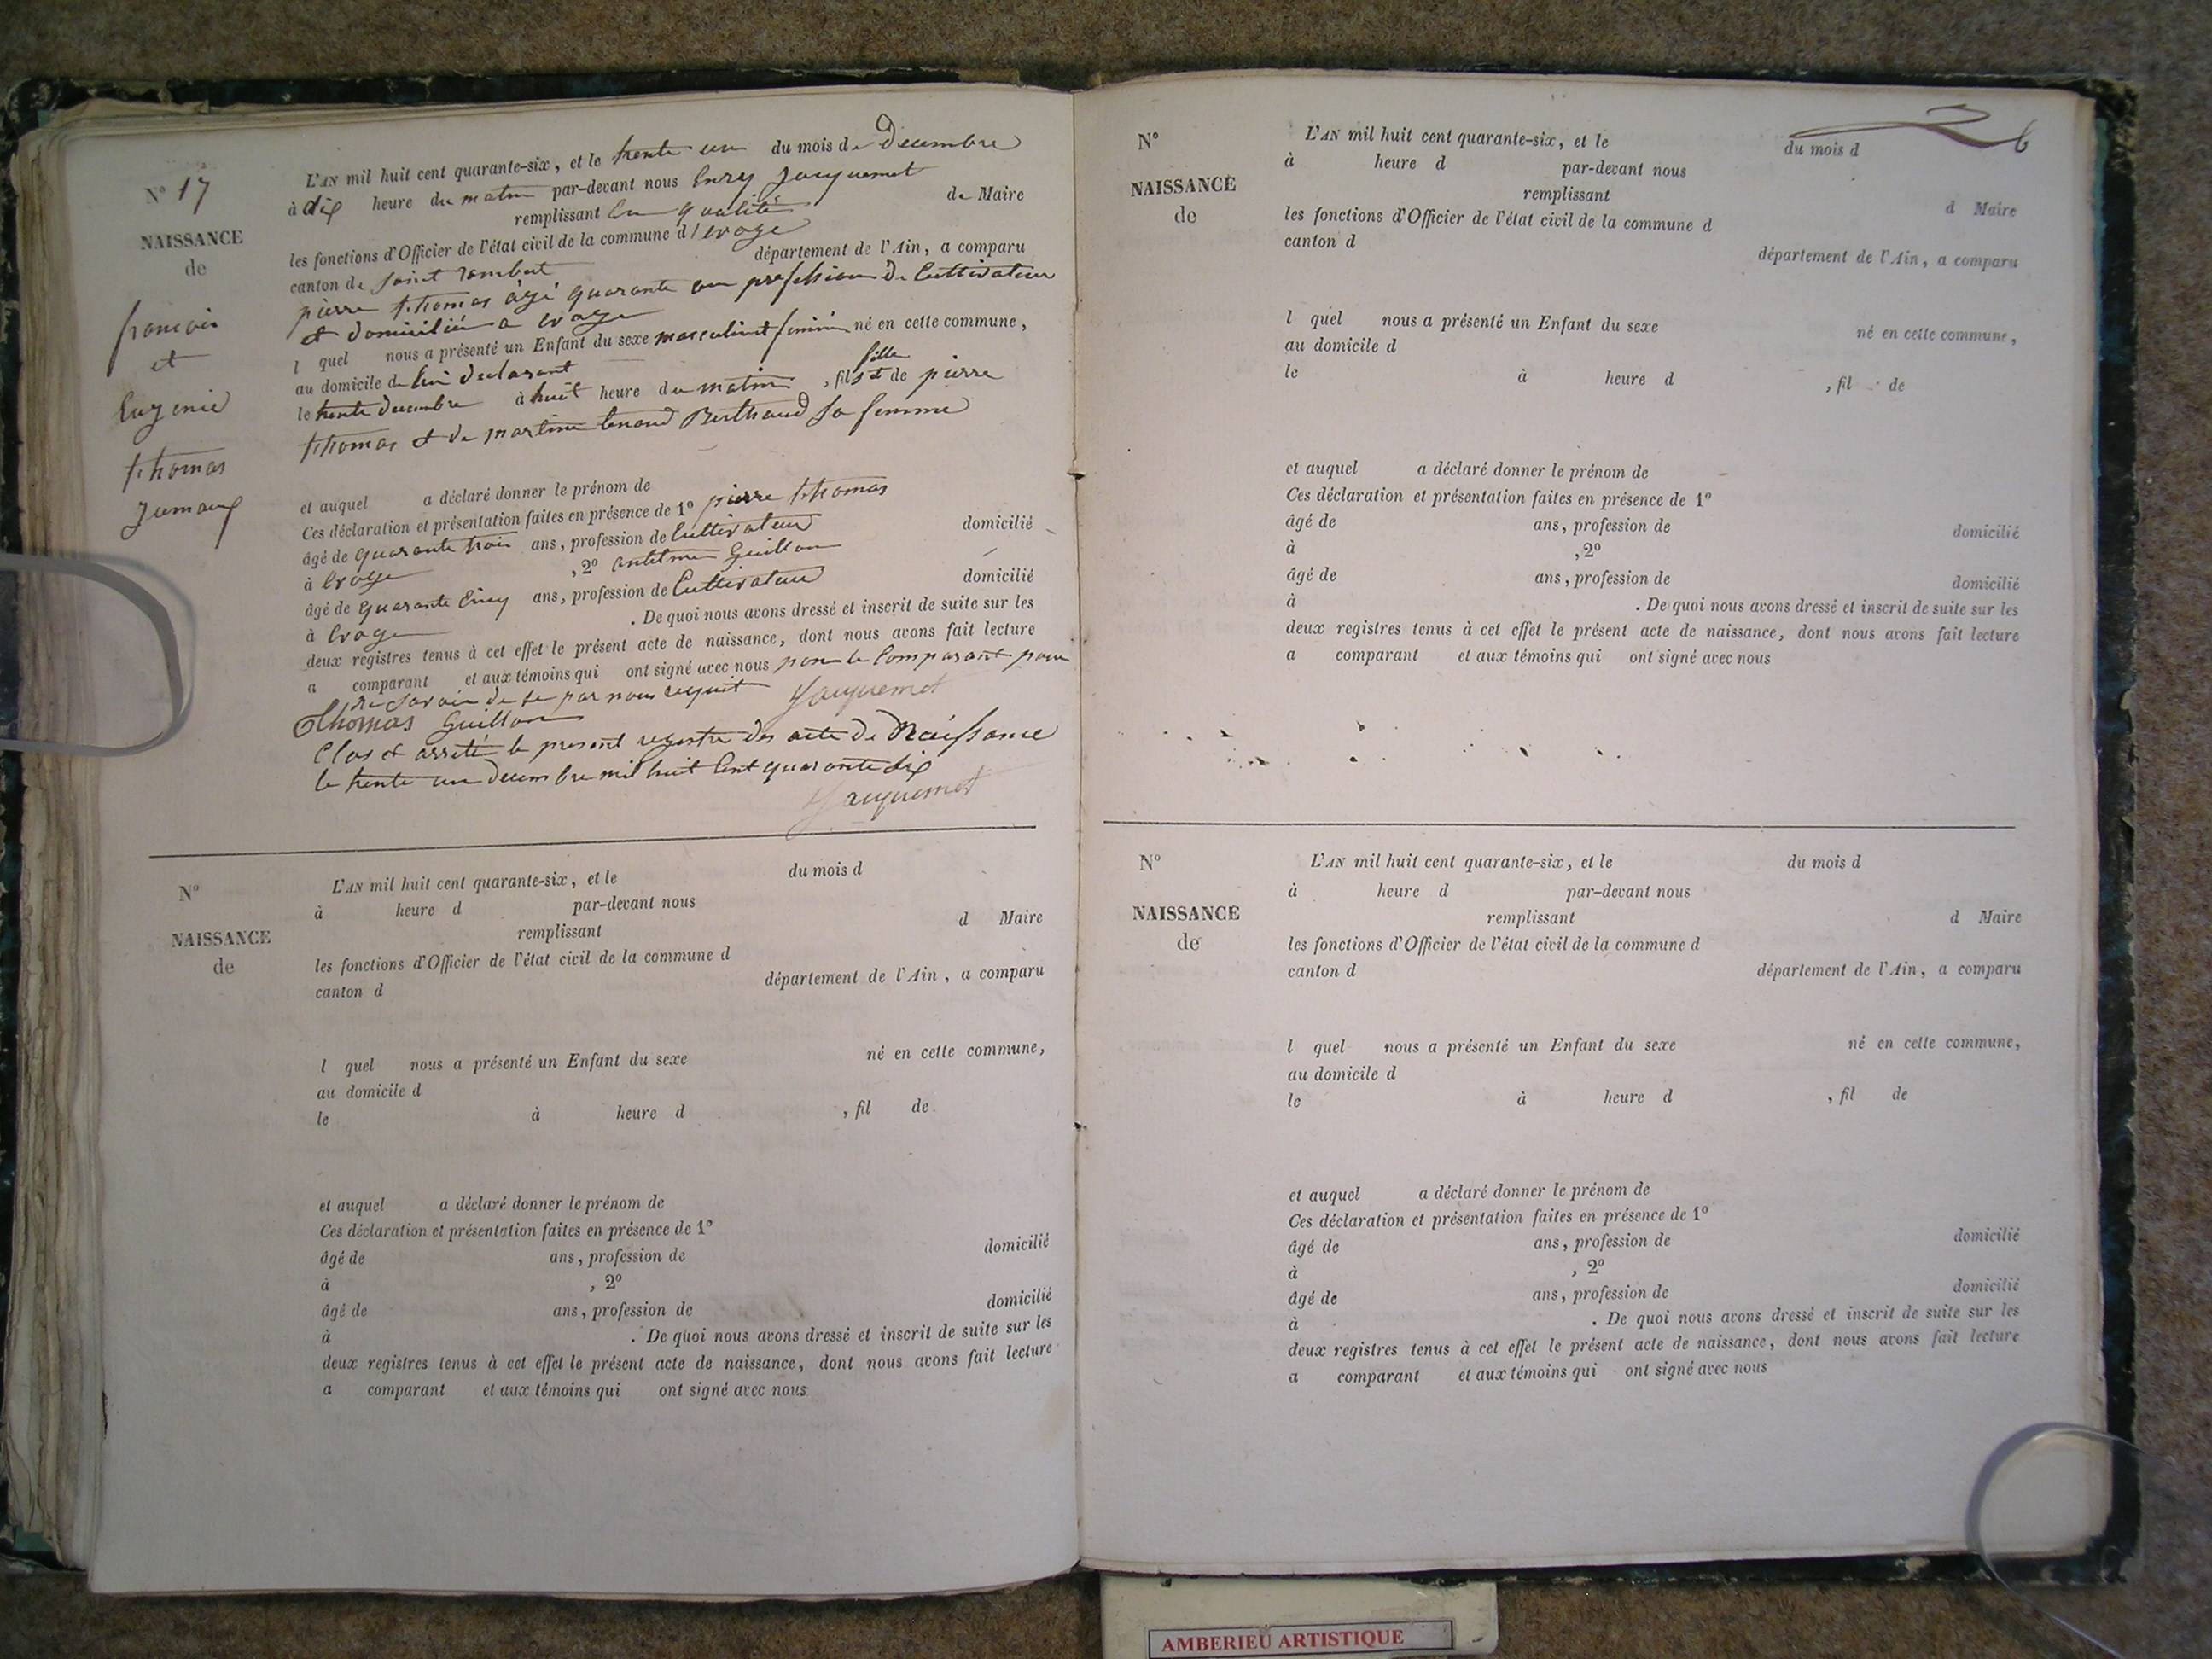 N° 17
NAISSANCE
de
francois
et
Eugenie
thomas
Jumaux
L'AN mil huit cent quarante-six, et le trente un du mois de Decembre
à dix heure du matin par-devant nous Enry Jacquemet
remplissant en qualité de Maire
les fonctions d'Officier de l'état civil de la commune d'Evoge
canton de Saint rambert département de l'Ain, a comparu
pierre thomas âgé quarante an profession de Cultivateur
et domicilié a Evoge
l quel nous a présenté un Enfant du sexe masculin et feminin né en cette commune,
au domicile de lui declarant
le trente decembre à huit heure du matin, fils et fille de pierre
thomas et de martine tenand Berthaud sa femme
et auquel a déclaré donner le prénom de
Ces déclaration et présentation faites en présence de 1° pierre thomas
âgé de quarante trois ans, profession de Cultivateur domicilié
à Evoge , 2° Guillon
âgé de quarante Cinq ans, profession de Cultivateur domicilié
à Evoge . De quoi nous avons dressé et inscrit de suite sur les
deux registres tenus à cet effet le présent acte de naissance, dont nous avons fait lecture
a comparant et aux témoins qui ont signé avec nous non le Comparant pour
ne savoir de ce par nous requit Jacquemet
Thomas Guillon
Clos et arreté le present registre des acte de Naissance
le trente un decembre mil huit Cent quarante six
Jacquemet
N°
NAISSANCE
de
L'AN mil huit cent quarante-six, et le du mois d
à heure d par-devant nous
remplissant d Maire
les fonctions d'Officier de l'état civil de la commune d
canton d département de l'Ain, a comparu
l quel nous a présenté un Enfant du sexe né en cette commune,
au domicile d
le à heure d , fil de
et auquel a déclaré donner le prénom de
Ces déclaration et présentation faites en présence de 1°
âgé de ans, profession de domicilié
à , 2°
âgé de ans, profession de domicilié
à . De quoi nous avons dressé et inscrit de suite sur les
deux registres tenus à cet effet le présent acte de naissance, dont nous avons fait lecture
a comparant et aux témoins qui ont signé avec nous
26
N°
NAISSANCE
de
L'AN mil huit cent quarante-six, et le du mois d
à heure d par-devant nous
remplissant d Maire
les fonctions d'Officier de l'état civil de la commune d
canton d département de l'Ain, a comparu
l quel nous a présenté un Enfant du sexe né en cette commune,
au domicile d
le à heure d , fil de
et auquel a déclaré donner le prénom de
Ces déclaration et présentation faites en présence de 1°
âgé de ans, profession de domicilié
à , 2°
âgé de ans, profession de domicilié
à . De quoi nous avons dressé et inscrit de suite sur les
deux registres tenus à cet effet le présent acte de naissance, dont nous avons fait lecture
a comparant et aux témoins qui ont signé avec nous
N°
NAISSANCE
de
L'AN mil huit cent quarante-six, et le du mois d
à heure d par-devant nous
remplissant d Maire
les fonctions d'Officier de l'état civil de la commune d
canton d département de l'Ain, a comparu
l quel nous a présenté un Enfant du sexe né en cette commune,
au domicile d
le à heure d , fil de
et auquel a déclaré donner le prénom de
Ces déclaration et présentation faites en présence de 1°
âgé de ans, profession de domicilié
à , 2°
âgé de ans, profession de domicilié
à . De quoi nous avons dressé et inscrit de suite sur les
deux registres tenus à cet effet le présent acte de naissance, dont nous avons fait lecture
a comparant et aux témoins qui ont signé avec nous
AMBERIEU ARTISTIQUE